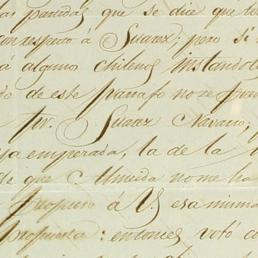 las partidas que se dice que
con respecto á Suarez; pero si
á algunos chilenos instandol
do de este parrafo no se
Sor. Suarez Navarro;
empeorada, la de la
de que Almeida no me ha
propuso á V. esa misma
propuesta: entonces votó co